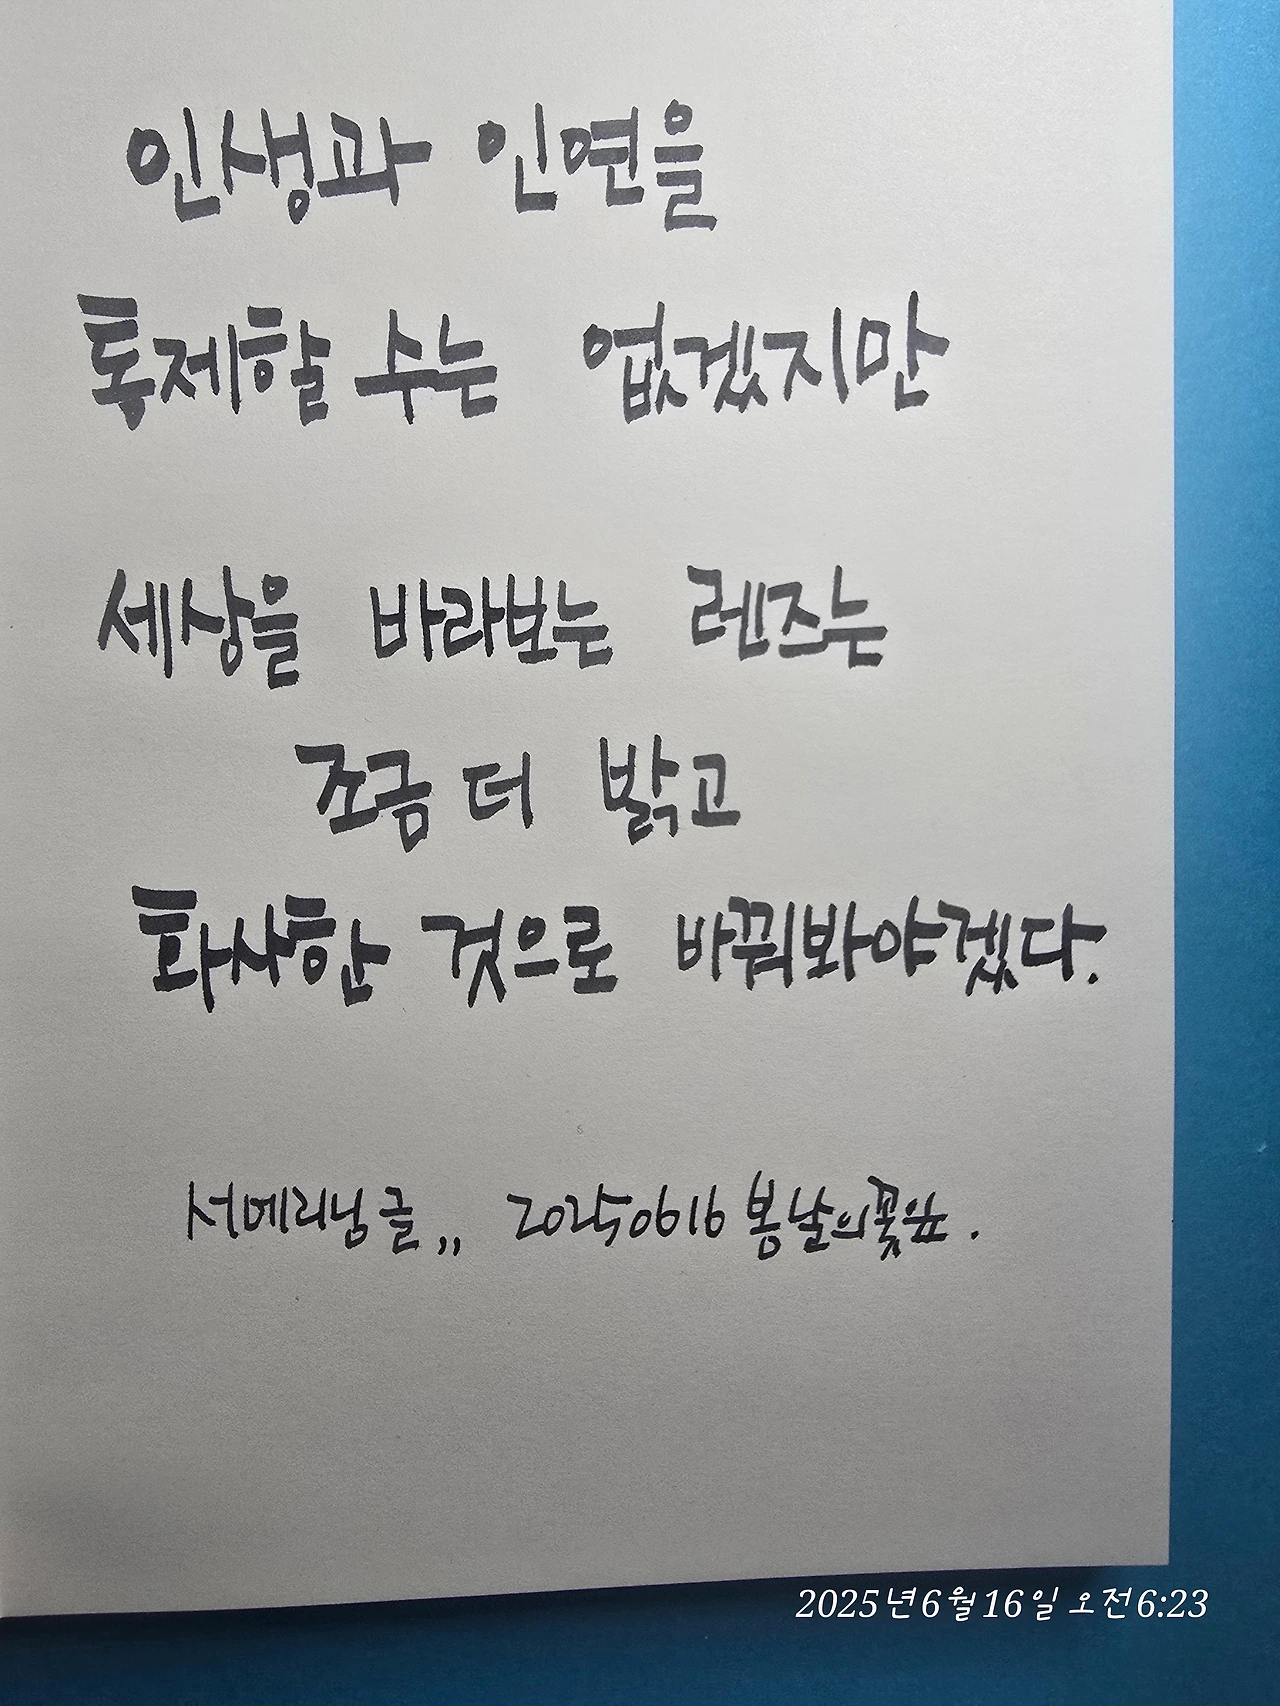 인생과 인연을
통제할 수는 없겠지만
세상을 바라보는 렌즈는
조금 더 밝고
화사한 것으로 바꿔봐야겠다.
서메리님 글,, 20250616 봄날의꽃잎.
2025년 6월 16일 오전 6:23